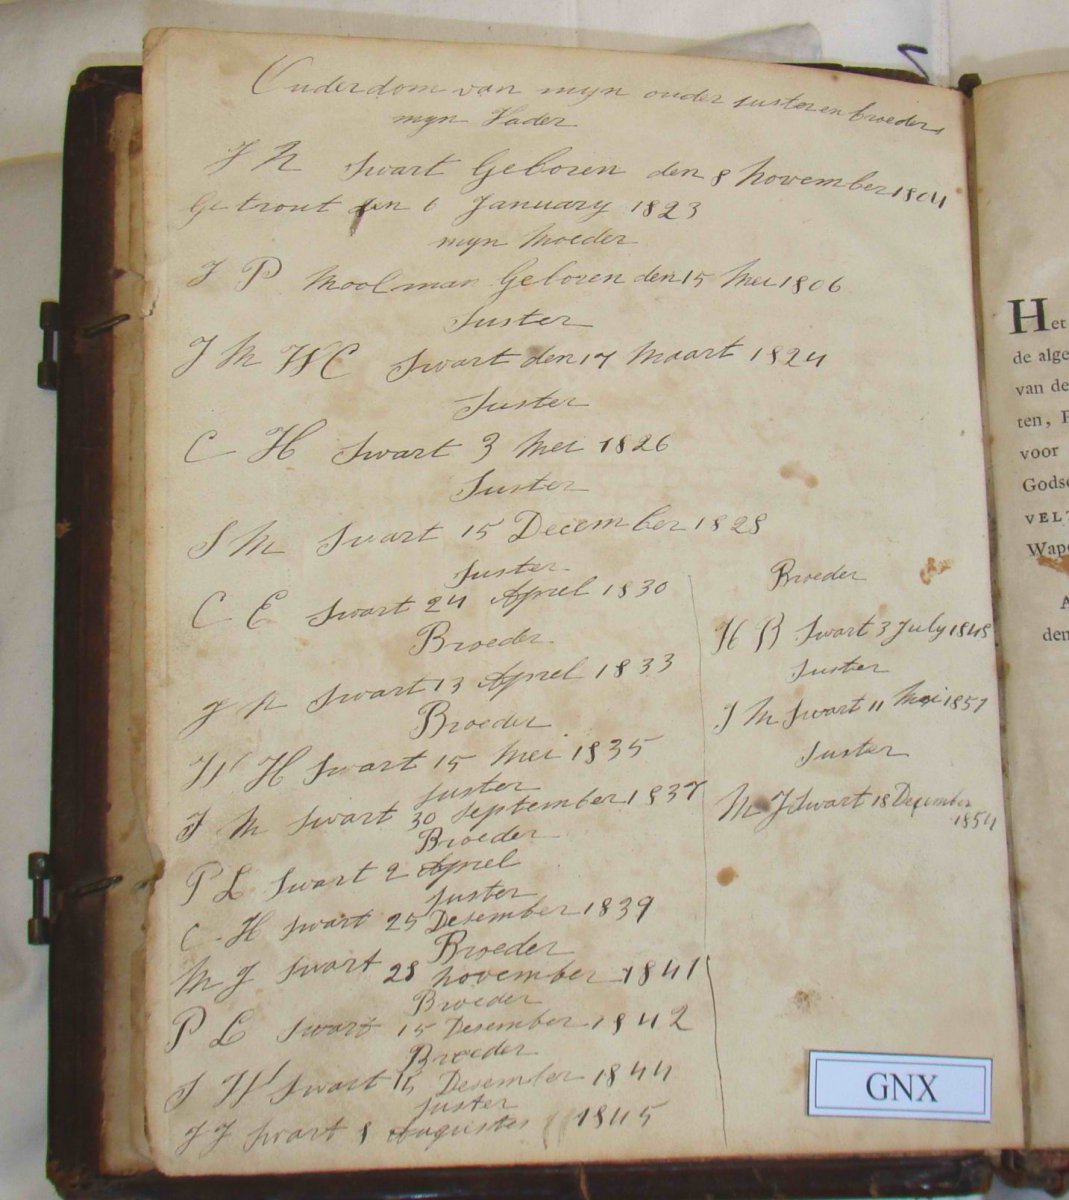 Ouderdom van myn ouder suster en broeders
myn Vader
J N Swart Geboren den 8 November 1804
Getrout den 6 January 1823
myn Moeder
J P Moolman Geboren den 15 Mei 1806
Suster
J M W C Swart den 17 Maart 1824
Suster
C H Swart 3 Mei 1826
Suster
S M Swart 15 December 1828
Suster
C E Swart 24 Aprel 1830
Broeder
J N Swart 13 Aprel 1833
Broeder
W H Swart 15 Mei 1835
Suster
J M Swart 30 September 1837
Broeder
P L Swart 2 Aprel
Suster
C H Swart 25 Desember 1839
Broeder
M J Swart 28 November 1841
Broeder
P L Swart 15 Desember 1842
Broeder
J W Swart 15 Desember 1844
Suster
J J Swart 8 Augustes 1845
Broeder
H B Swart 3 July 1848
Suster
J M Swart 11 Mei 1851
Suster
M J Swart 18 December
1854
GNX
Het
de alge
van de
ten,
voor
Gods
VELT
Wap
den